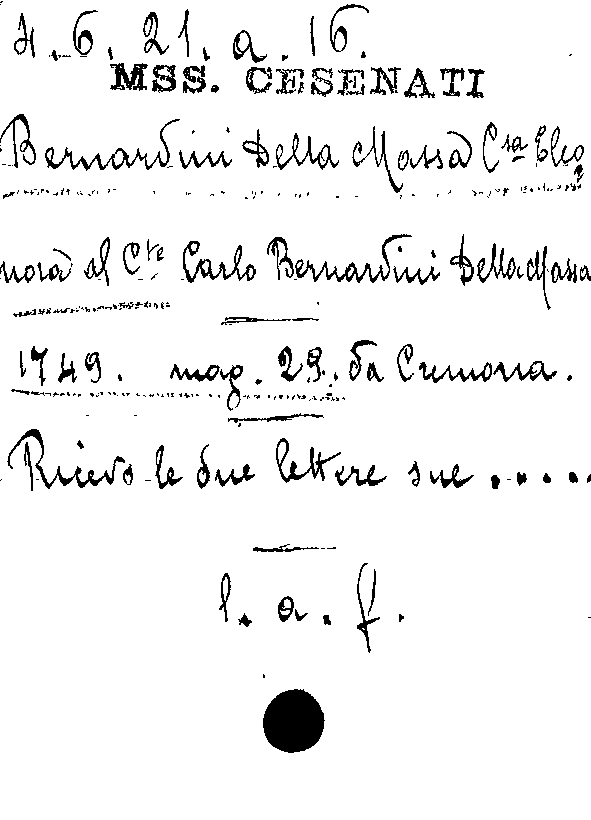 4.6.21.a.16.
MSS. CESENATI
Bernardini Della Massa C.sa Eleo
nora al C.te Carlo Bernardini Della Massa
1749. mag. 29. da Cremona.
Ricevo le due lettere sue .....
l. a. f.